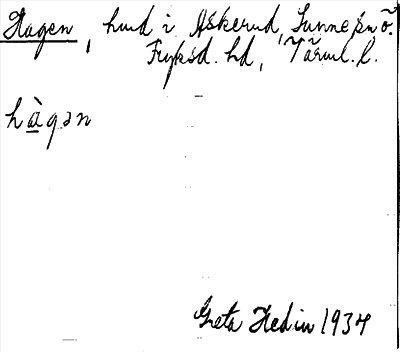 Hagen, hmd i Askerud, Sunne sn ö.
Fryksd. hd, Värml. l.
hàgən
Greta Hedin 1934